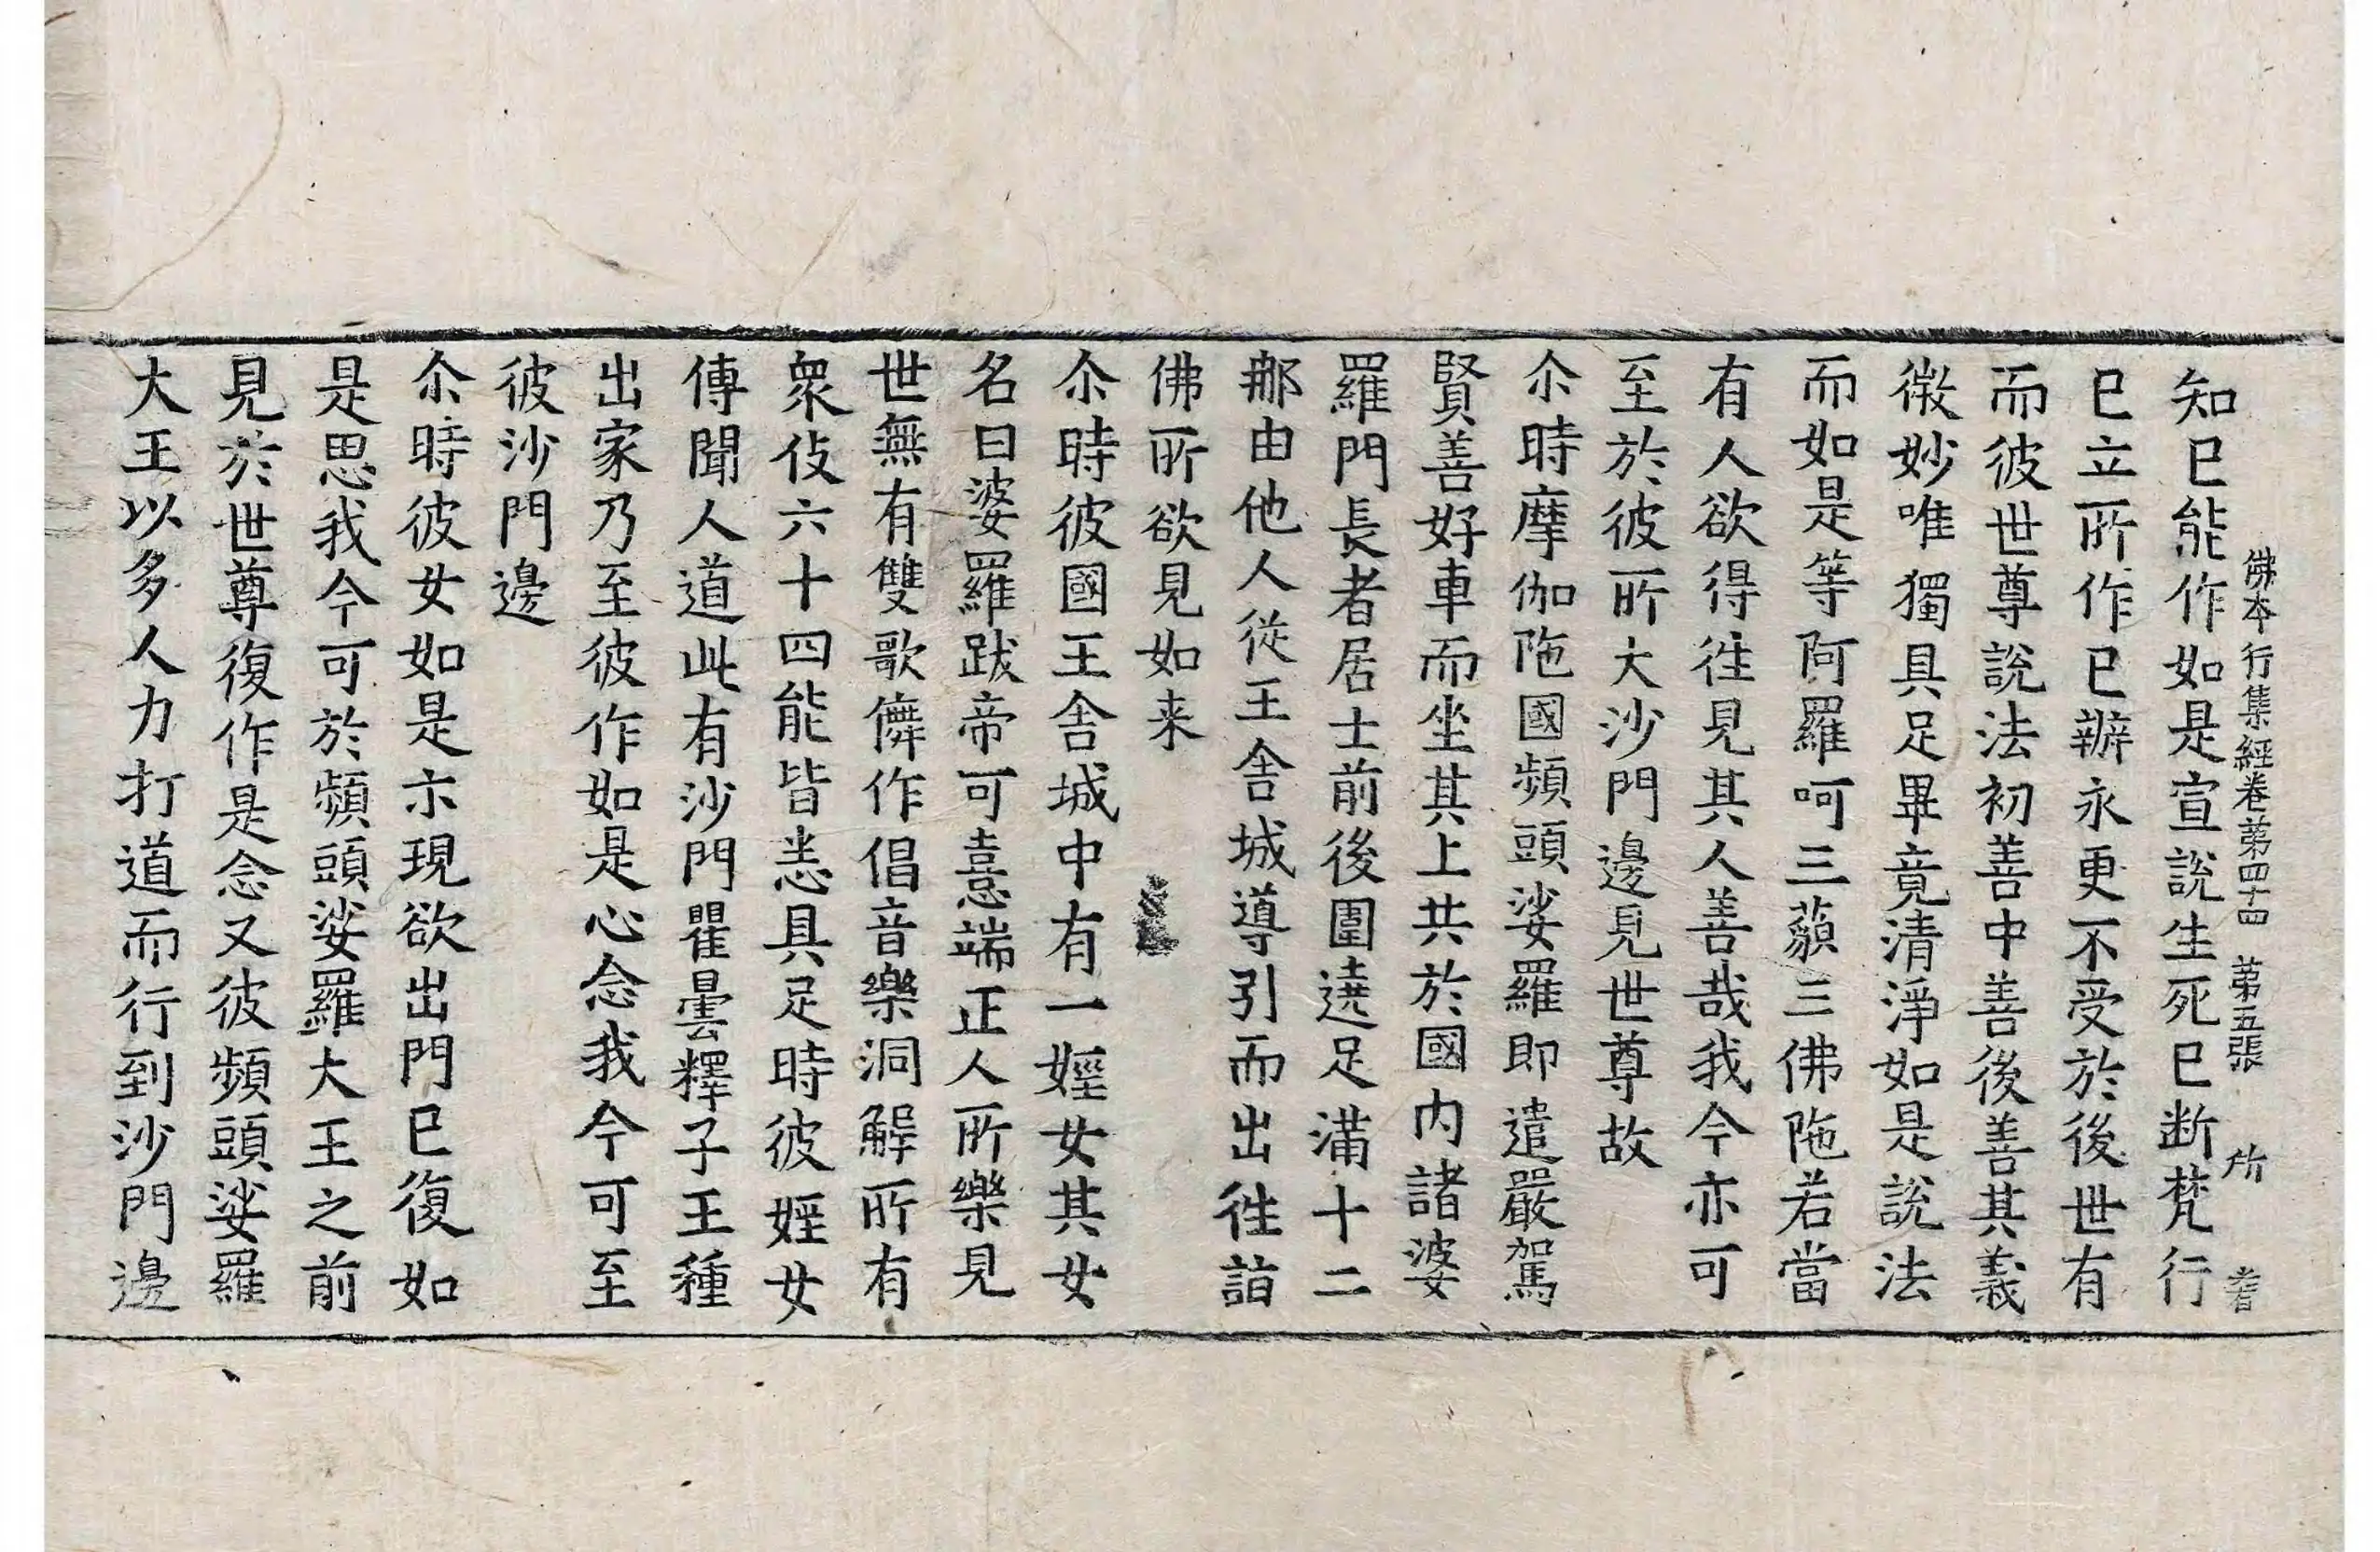 佛本行集經卷第四十四 第五張 所
知已能作如是宣說生死已断梵行
已立所作已辦永更不受於後世有
而彼世尊說法初善中善後善其義
微妙唯獨具足畢竟清淨如是說法
而如是等阿羅呵三藐三佛陁若當
有人欲得徃見其人善哉我今亦可
至於彼所大沙門邊見世尊故
尒時摩伽陁國頻頭娑羅即遣嚴駕
賢善好車而坐其上共於國内諸婆
羅門長者居士前後圍遶足滿十二
那由他人從王舍城導引而出徃詣
佛所欲見如来
尒時彼國王舍城中有一婬女其女
名曰婆羅跋帝可憙端正人所樂見
世無有雙歌儛作倡音樂洞解所有
衆伎六十四能皆悉具足時彼婬女
傳聞人道此有沙門瞿曇釋子王種
出家乃至彼作如是心念我今可至
彼沙門邊
尒時彼女如是示現欲出門已復如
是思我今可於頻頭娑羅大王之前
見於世尊復作是念又彼頻頭娑羅
大王以多人力打道而行到沙門邊